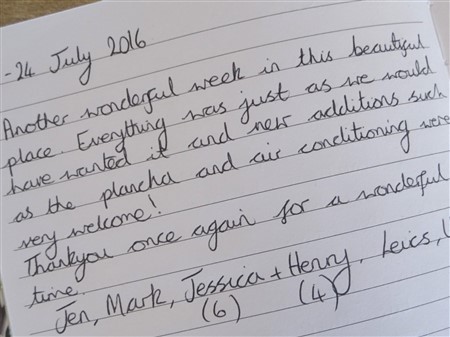 -24 July 2016
Another wonderful week in this beautiful
place. Everything was just as we would
have wanted it and new additions such
as the plancha and air conditioning were
very welcome!
Thankyou once again for a wonderful
time.
Jen, Mark, Jessica + Henry, Leics,
(6) (4)